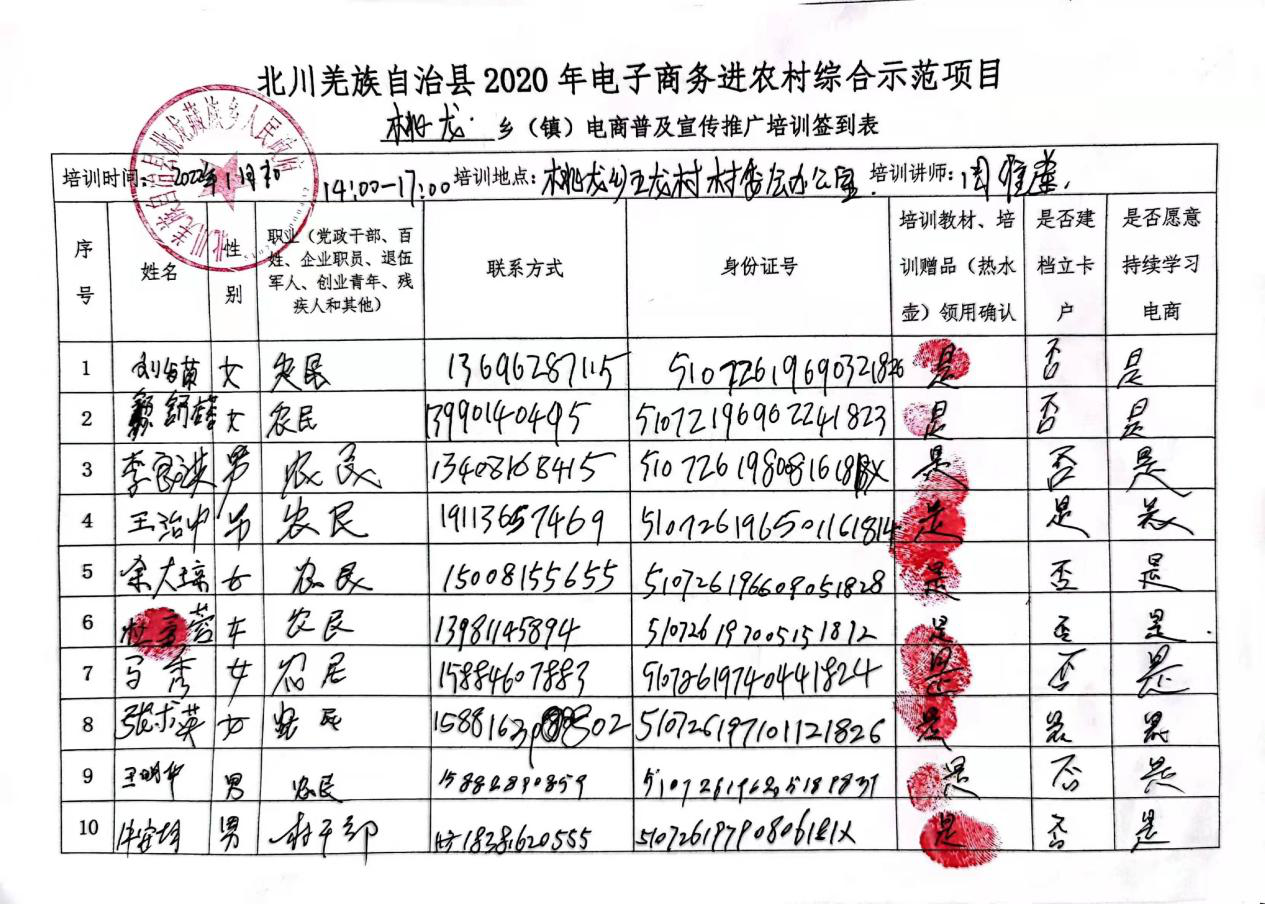 北川羌族自治县 2020 年电子商务进农村综合示范项目
桃龙 乡（镇）电商普及宣传推广培训签到表
培训时间： 2022年1月 14:00-17:00 培训地点：桃龙乡 龙村 村委会办公室. 培训讲师：
序号 姓名 性别 职业（党政干部、百姓、企业职员、退伍军人、创业青年、残疾人和其他） 联系方式 身份证号 培训教材、培训赠品（热水壶）领用确认 是否建档立卡户 是否愿意持续学习电商
1 女 农民 13696287115 51072619690321826 是 否 是
2 女 农民 13990140495 510721969602241823 是 否 是
3 李 洪 男 农民 13408168415 是 否 是
4 王治中 男 农民 19113657469 510726196501161814 是 是 是
5 余大琼 女 农民 15008155655 510726196609051828 是 否 是
6 杜 蓉 女 农民 13981145894 510726197005151812 是 否 是.
7 马秀 女 农民 15884607883 510726197404041824 是 否 是
8 张 英 女 农民 510726197101121826 是 是 是
9 王明华 男 农民 15882890859 是 否 是
10 男 村干部 18381620555 是 否 是